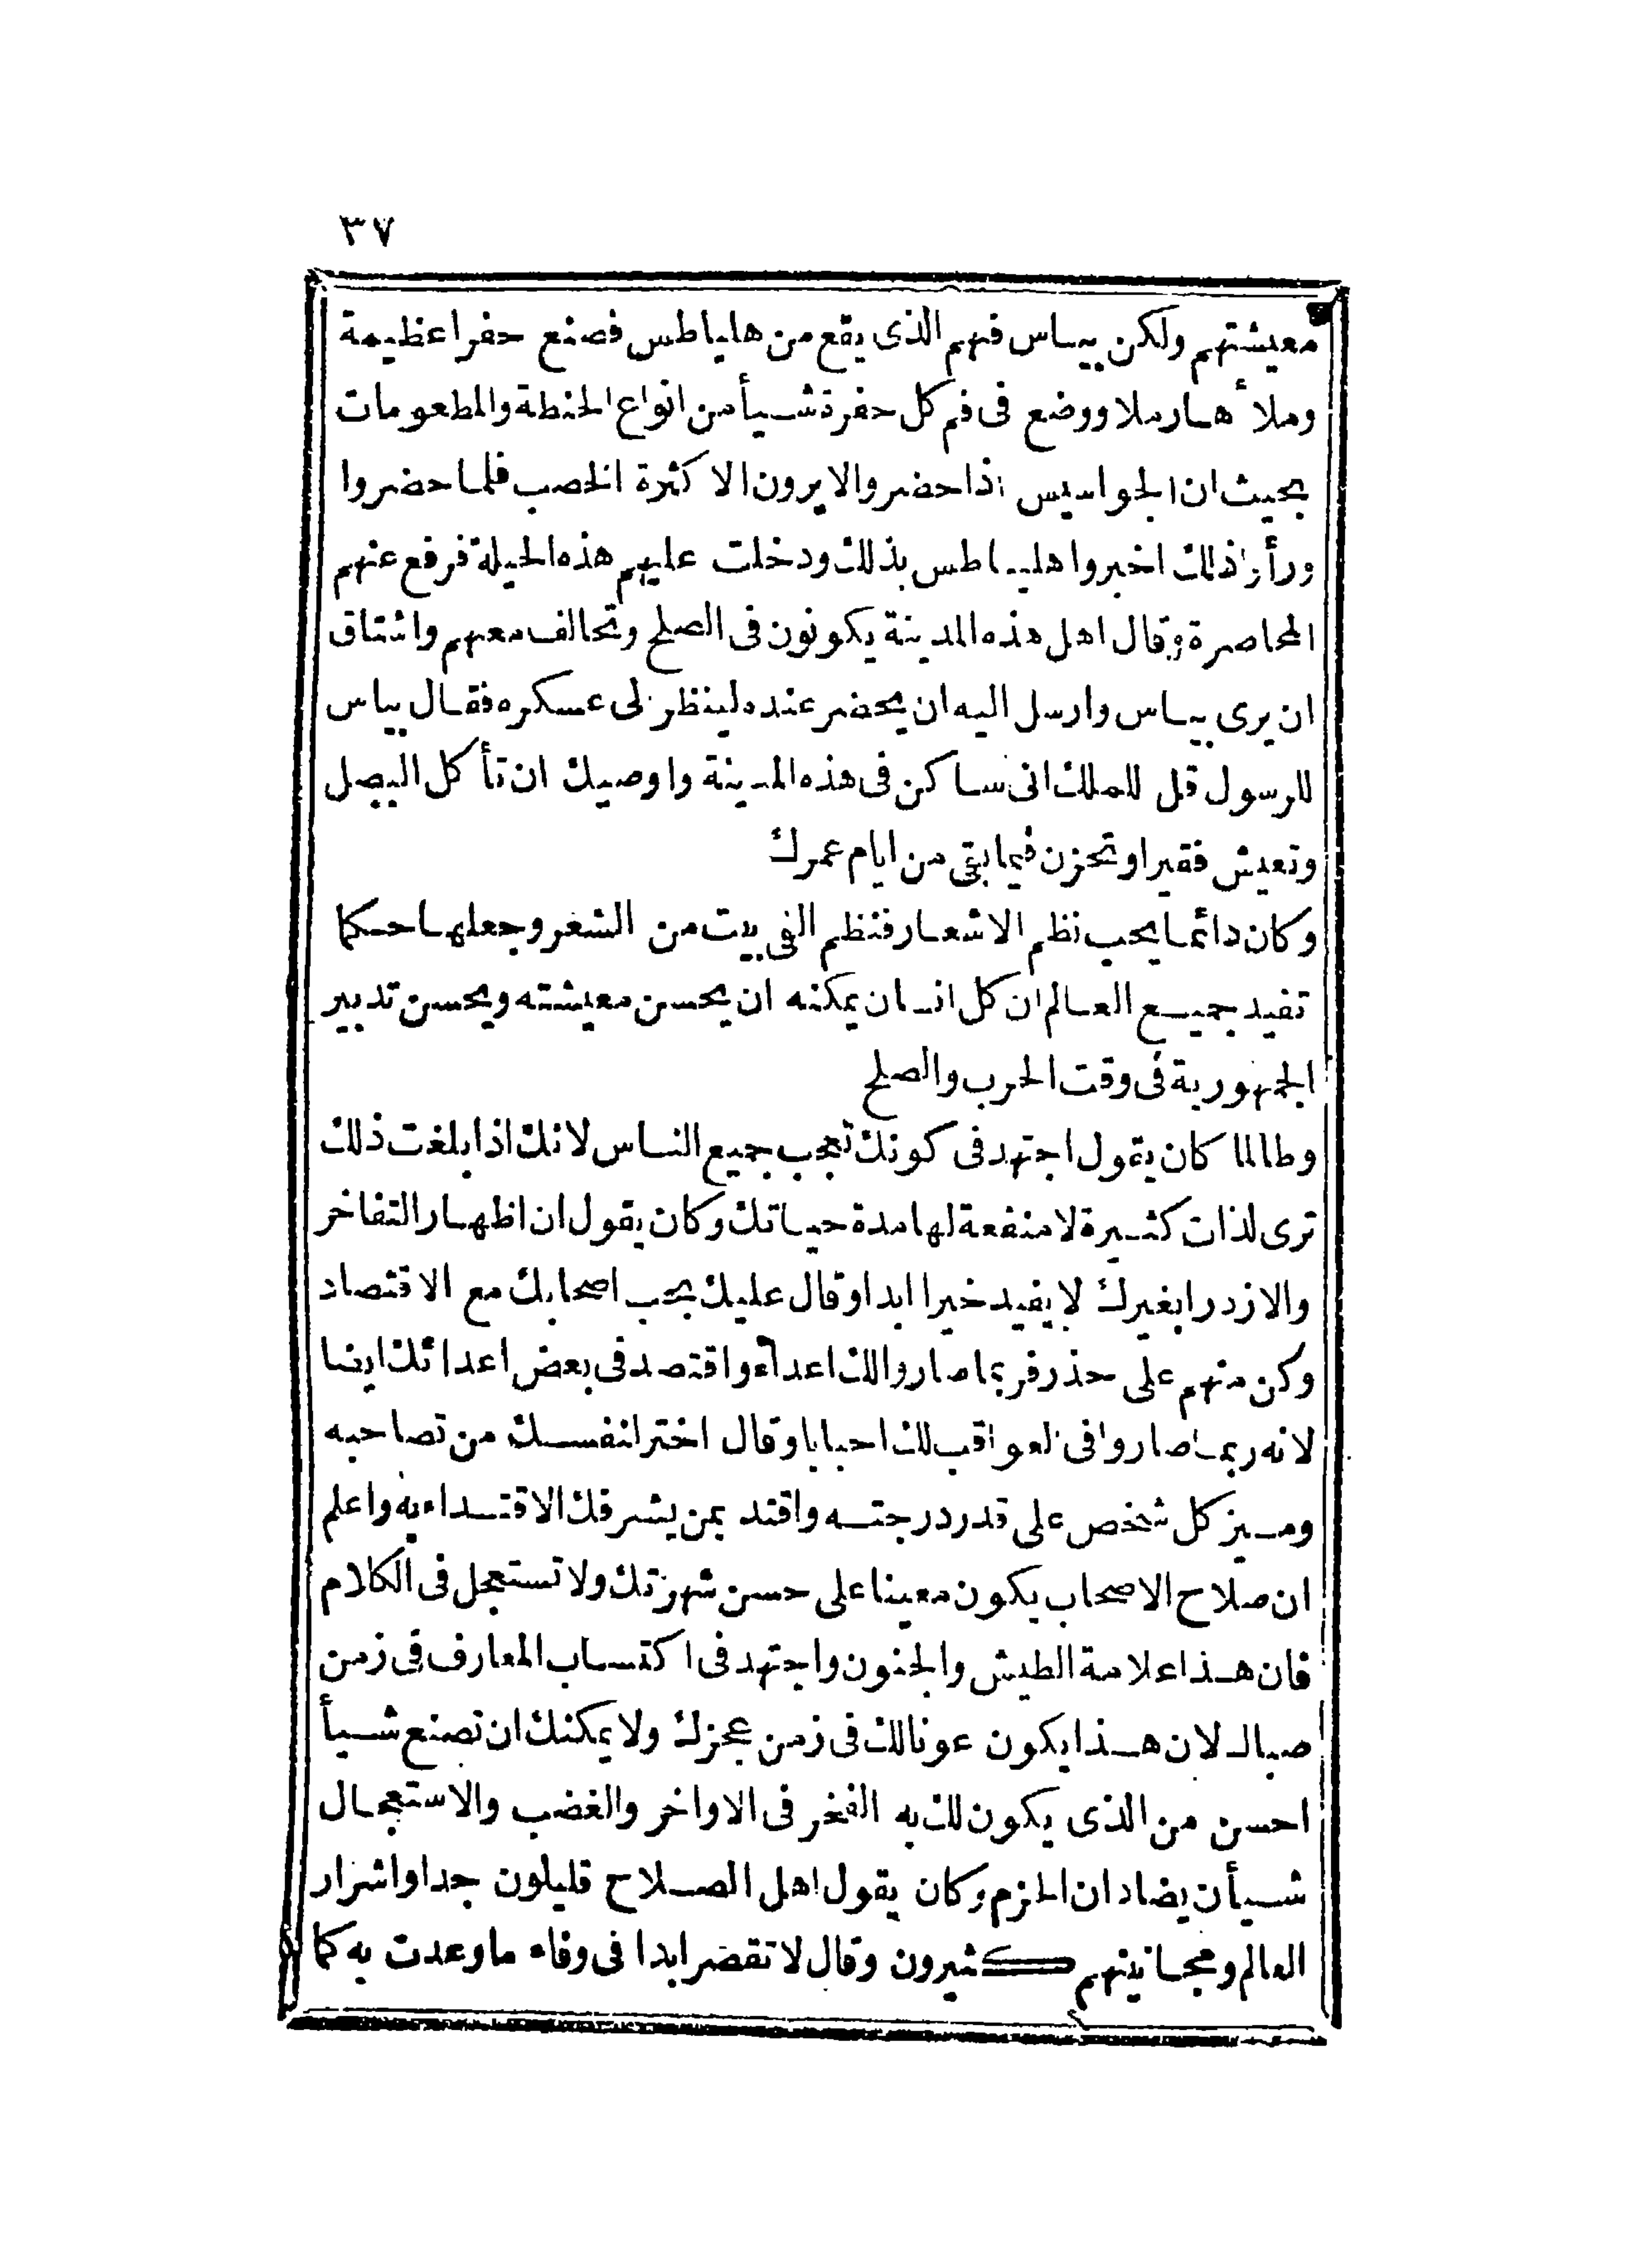 ٣٧
معيشتهم ولكن بيباس فهم الذى يقع من هلياطس فصنع حفرا عظيمة
وملأها رملا ووضع فى فم كل حفرة شيأ من انواع الحنطة والمطعومات
بحيث ان الجواسيس اذا حضروا لا يرون الا كثرة الخصب فلما حضروا
ورأوا ذلك اخبروا هلياطس بذلك ودخلت عليهم هذه الحيلة فرفع عنهم
المحاصرة وقال اهل هذه المدينة يكونون فى الصلح وتحالف معهم واشتاق
ان يرى بياس وارسل اليه ان يحضر عنده لينظر الى عسكره فقال بياس
للرسول قل للملك انى ساكن فى هذه المدينة واوصيك ان تأكل البصل
وتعيش فقيرا وتحزن فيما بقى من ايام عمرك
وكان دائما يحب نظم الاشعار فنظم الفى بيت من الشعر وجعلها حكما
تفيد جميع العالم ان كل انسان يمكنه ان يحسن معيشته ويحسن تدبير
الجمهورية فى وقت الحرب والصلح
وطالما كان يقول اجتهد فى كونك تعجب جميع الناس لانك اذا بلغت ذلك
ترى لذات كثيرة لا منفعة لها مدة حياتك وكان يقول ان اظهار التفاخر
والازدرا بغيرك لا يفيد خيرا ابدا وقال عليك بحب اصحابك مع الاقتصاد
وكن منهم على حذر فربما صاروا لك اعداء واقتصد فى بعض اعدائك ايضا
لانه ربما صاروا فى العواقب لك احبابا وقال اختر لنفسك من تصاحبه
وميز كل شخص على قدر درجته واقتد بمن يشرفك الاقتداء به واعلم
ان صلاح الاصحاب يكون معينا على حسن شهرتك ولا تستعجل فى الكلام
فان هذا علامة الطيش والجنون واجتهد فى اكتساب المعارف فى زمن
صباك لان هذا يكون عونا لك فى زمن عجزك ولا يمكنك ان تصنع شيأ
احسن من الذى يكون لك به الفخر فى الاواخر والغضب والاستعجال
شيأن يضادان الحزم وكان يقول اهل الصلاح قليلون جدا واشرار
العالم ومجانينهم كثيرون وقال لا تقصر ابدا فى وفاء ما وعدت به كما